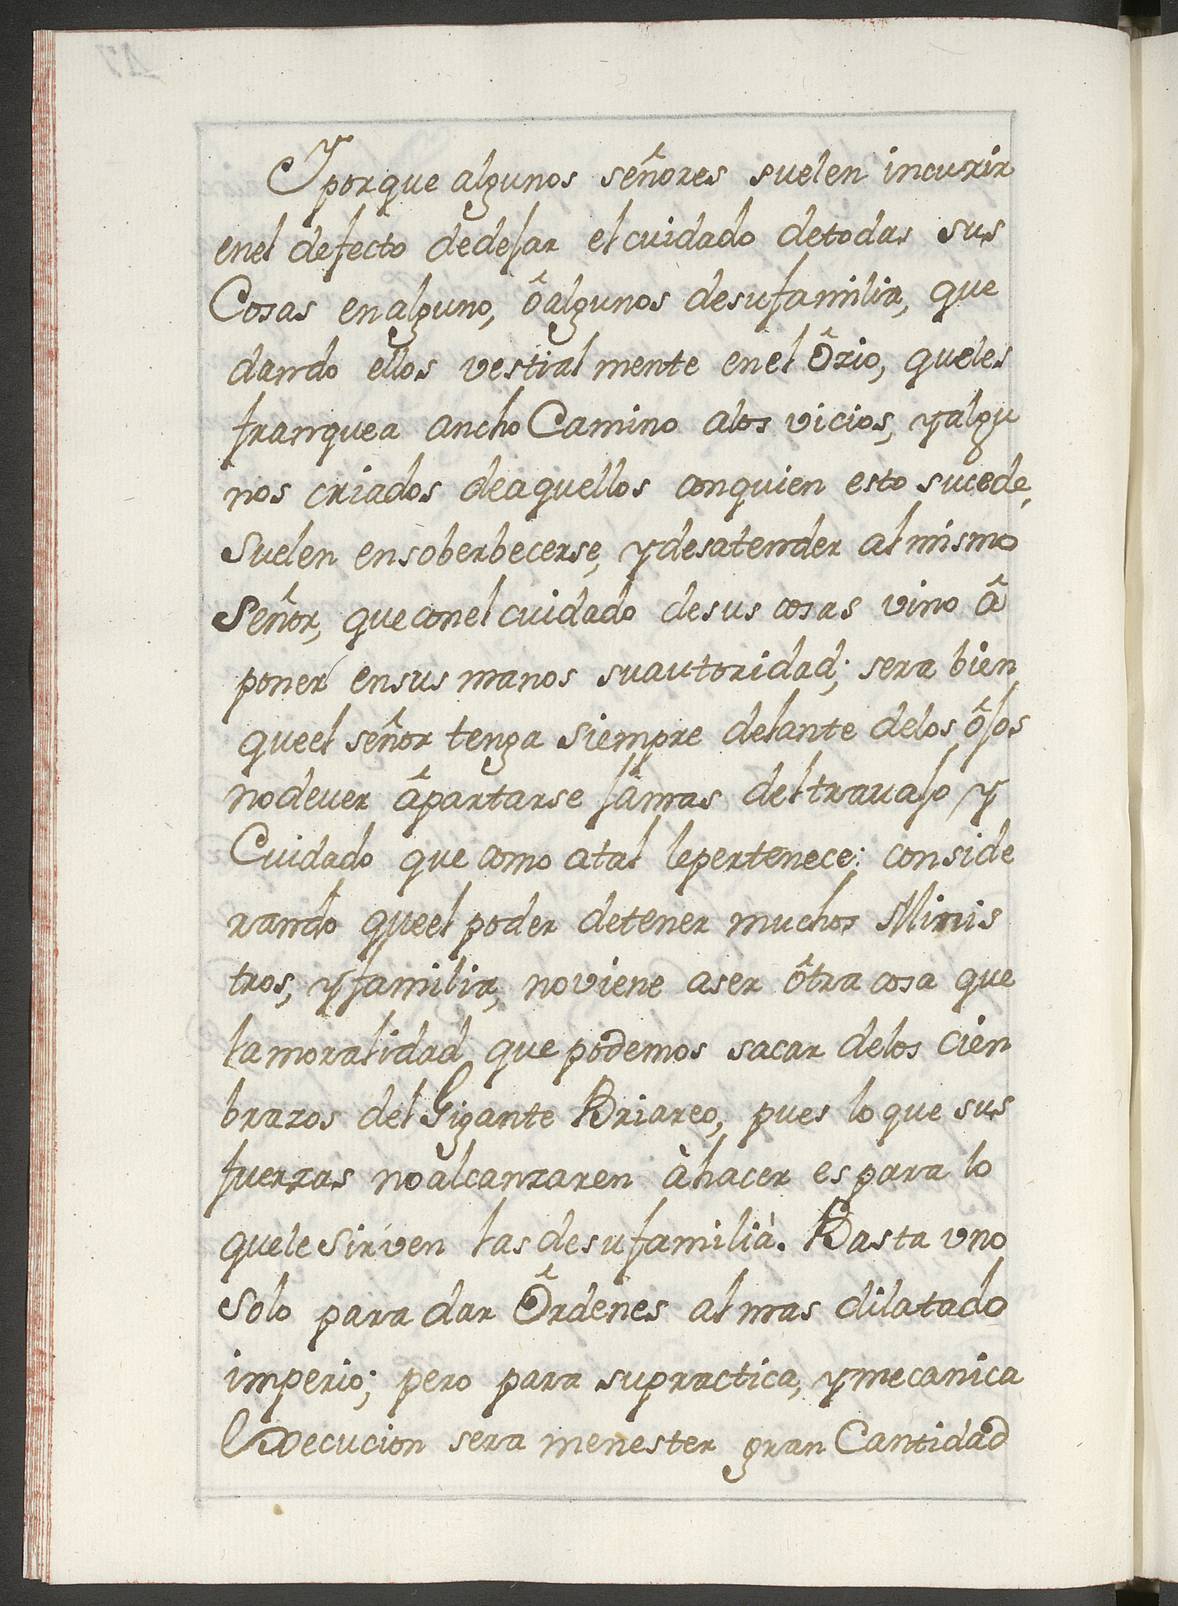 Y porque algunos señores suelen incurir
enel defecto dedejar el cuidado detodas sus
Cosas en alguno, ô algunos desufamilia, que
dando ellos vestial mente en el Ôzio, queles
franquea ancho Camino alos vicios, y algu
nos criados deaquellos conquien esto sucede,
Suelen ensoberbecerse, y desatender al mismo
Señor, que conel cuidado desus cosas vino â
poner ensus manos suautoridad; sera bien
queel señor tenga siempre delante delos ôjos
nodever âpartarse jamas del travajo y
Cuidado que como atal lepertenece: conside
rando queel poder detener muchos Minis
tros, y familia, noviene aser ôtra cosa que
la moralidad que podemos sacar delos cien
brazos del Gigante Briareo, pues lo que sus
fuerzas noalcanzaren àhacer es para lo
quele sirven las desufamilià. Basta vno
Solo para dar Ôrdenes al mas dilatado
imperio; pero para supractica, y mecanica
Execucion sera menester gran Cantidad